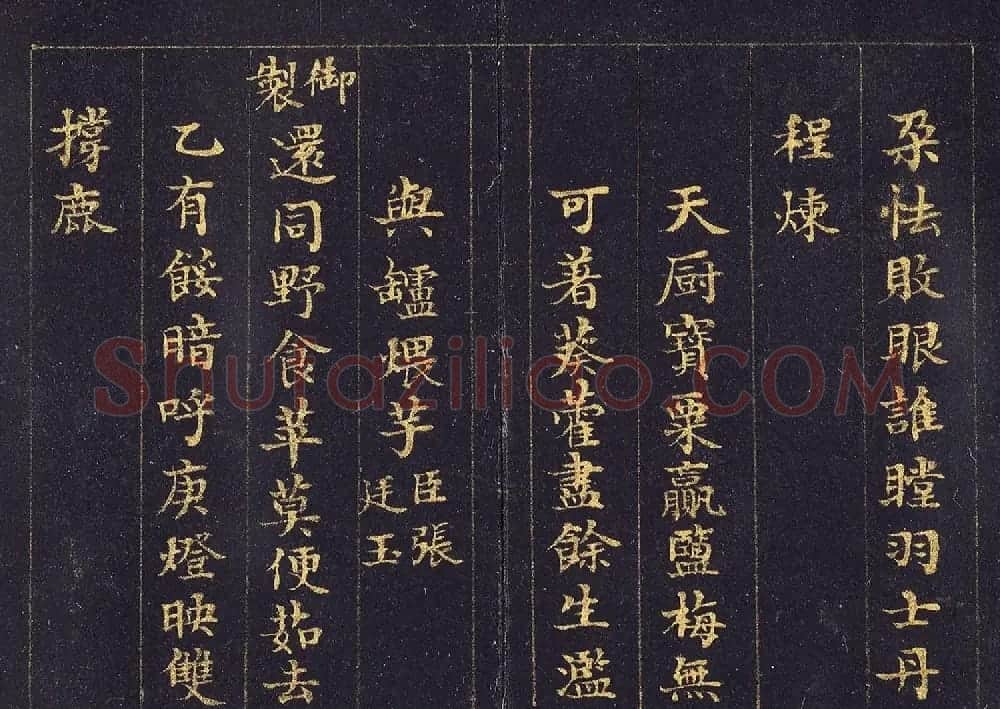 朶怯敗眼誰瞠羽士丹
程煉
天厨寶粟贏鹽梅無
可著葵藿盡餘生濫
與罏煨芋臣張廷玉
御製還同野食苹莫便茹去
乙有餒暗呼庚燈映雙
撐鹿
Shufazilioo.COM